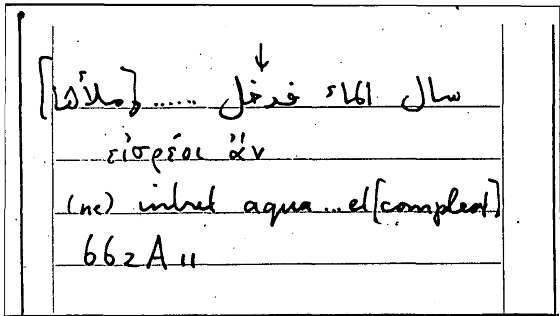 سال الماء فدخل ...... [وملأها]
εἰσρέοι ἄν
(ne) intret aqua ... et [compleat]
662 A 11